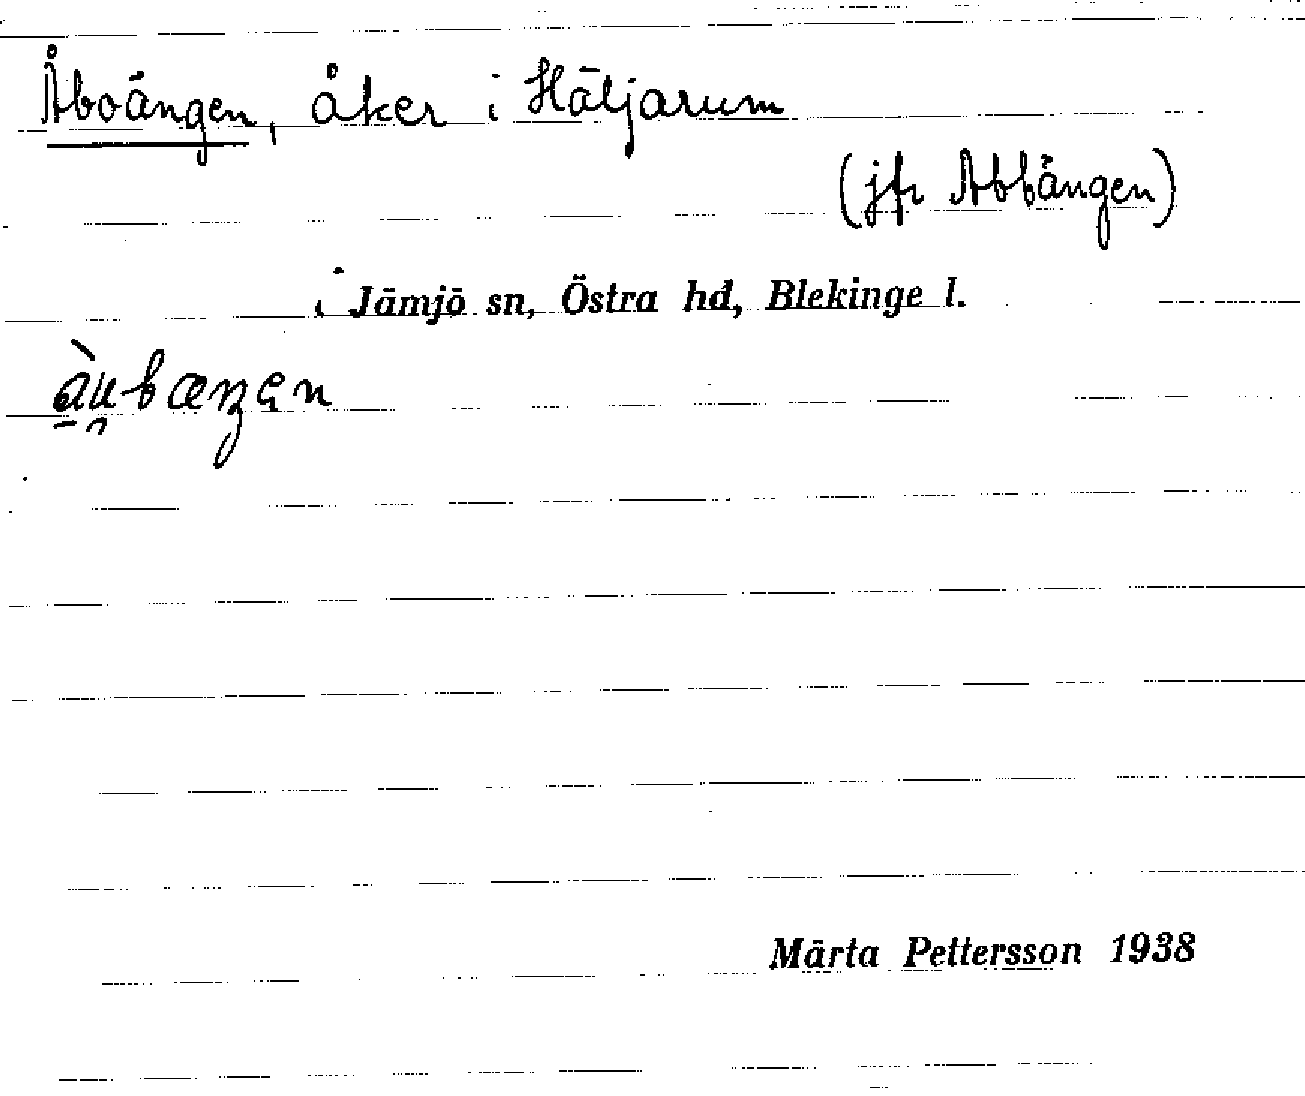 Åboängen, åker i Hätjarum
(jfr Abbängen)
i Jämjö sn, Östra hd, Blekinge l.
Märta Pettersson 1938